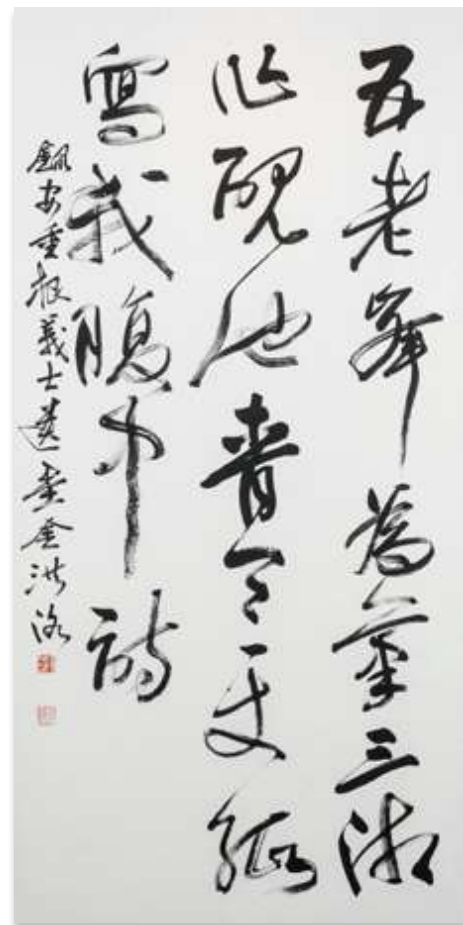 五老峯為筆三湘
作硯池青天一丈紙
寫我腹中詩
安重根義士遺 金洪